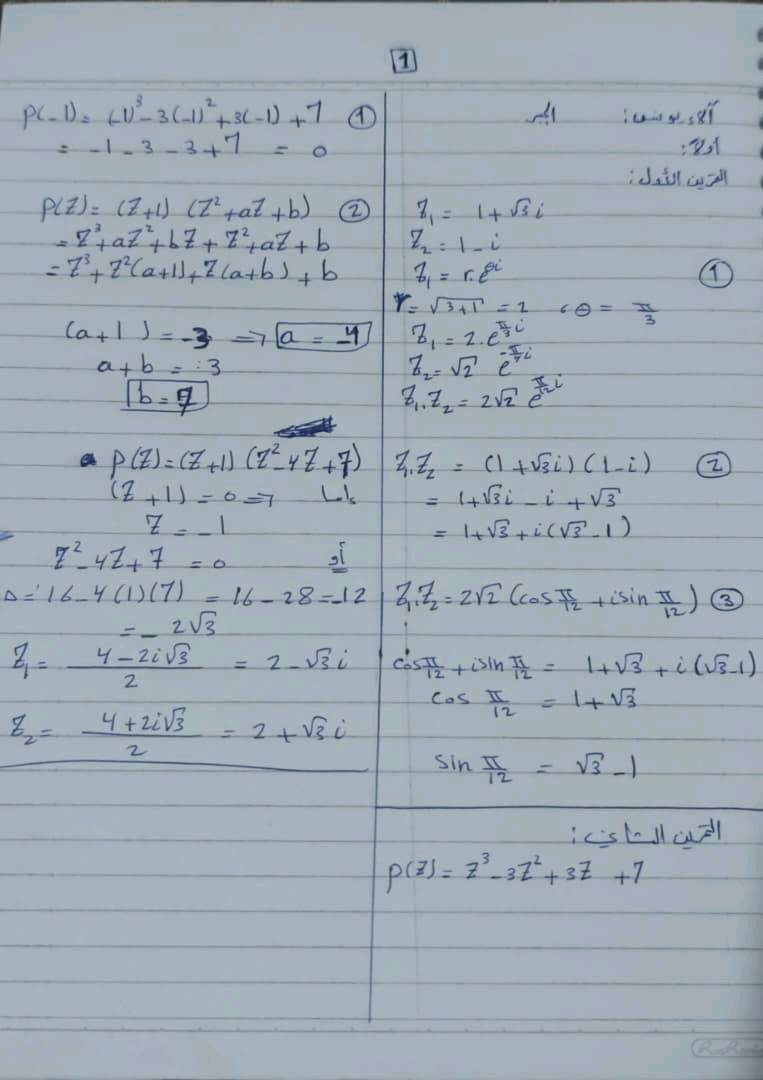 1
آلاء يونس: الجبر
أولاً:
التمرين الأول:
Z₁ = 1 + √3 i
Z₂ = 1 - i
① Z₁ = r.e^{θi}
r = √(3+1) = 2 , θ = π/3
Z₁ = 2.e^{π/3 i}
Z₂ = √2 e^{-π/4 i}
Z₁.Z₂ = 2√2 e^{π/12 i}
② Z₁.Z₂ = (1+√3i)(1-i)
= 1+√3i - i + √3
= 1+√3 + i(√3-1)
③ Z₁.Z₂ = 2√2 (cos π/12 + isin π/12)
cos π/12 + isin π/12 = 1+√3 + i(√3-1)
cos π/12 = 1+√3
sin π/12 = √3 - 1
التمرين الثاني:
p(Z) = Z³ - 3Z² + 3Z + 7
① p(-1) = (-1)³ - 3(-1)² + 3(-1) + 7
= -1 - 3 - 3 + 7 = 0
② p(Z) = (Z+1) (Z²+aZ+b)
= Z³+aZ²+bZ+Z²+aZ+b
= Z³+Z²(a+1)+Z(a+b)+b
(a+1) = -3 ⇒ a = -4
a+b = 3
b = 7
p(Z) = (Z+1) (Z²-4Z+7)
إما (Z+1) = 0 ⇒
Z = -1
أو Z²-4Z+7 = 0
Δ = 16-4(1)(7) = 16-28 = -12
= -2√3
Z₁ = (4-2i√3)/2 = 2-√3 i
Z₂ = (4+2i√3)/2 = 2+√3 i